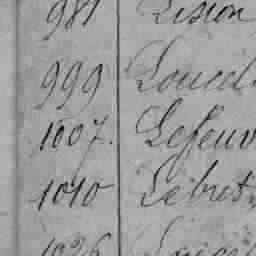 981 Lision
999 Loucel
1007. Lefeuv
1010 Lebret
1026